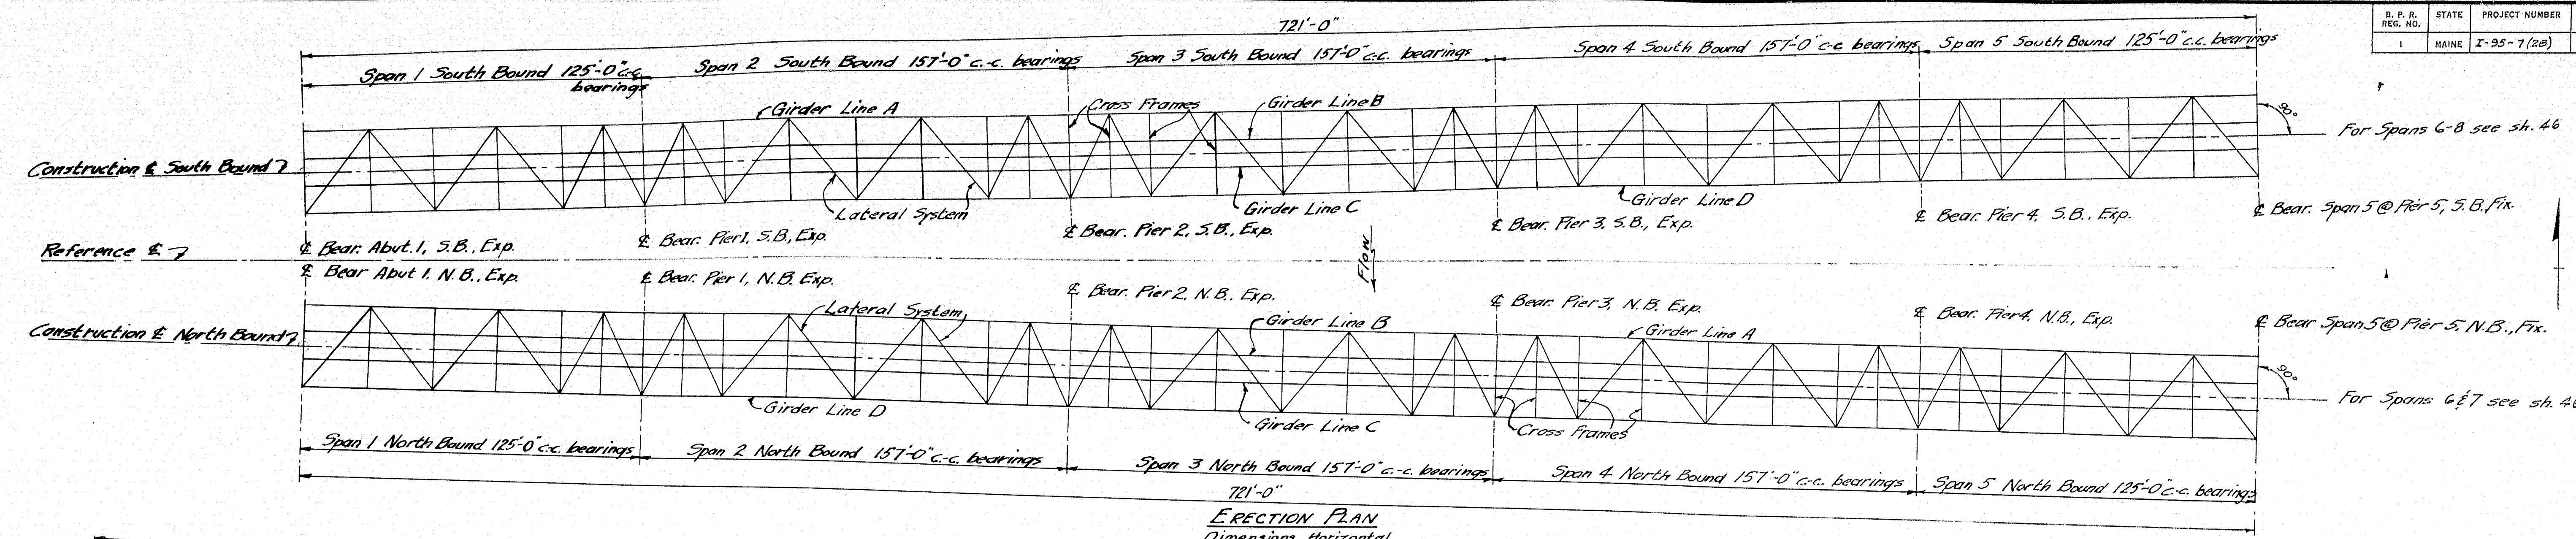 721'-0"
B. P. R. REG. NO.
STATE
PROJECT NUMBER
1
MAINE
I-95-7(28)
Span 1 South Bound 125'-0" c.c. bearings
Span 2 South Bound 157'-0" c.-c. bearings
Span 3 South Bound 157'-0" c.-c. bearings
Span 4 South Bound 157'-0" c-c bearings
Span 5 South Bound 125'-0" c.c. bearings
Girder Line A
Cross Frames
Girder Line B
90°
For Spans 6-8 see sh. 46
Construction ℄ South Bound
Lateral System
Girder Line C
Girder Line D
℄ Bear. Abut. 1, S.B., Exp.
℄ Bear. Pier 1, S.B., Exp.
℄ Bear. Pier 2, S.B., Exp.
℄ Bear. Pier 3, S.B., Exp.
℄ Bear. Pier 4, S.B., Exp.
℄ Bear. Span 5 @ Pier 5, S.B. Fix.
Reference ℄
Flow
℄ Bear Abut 1. N.B., Exp.
℄ Bear. Pier 1, N.B. Exp.
℄ Bear. Pier 2, N.B., Exp.
℄ Bear. Pier 3, N.B. Exp.
℄ Bear. Pier 4, N.B., Exp.
℄ Bear Span 5 @ Pier 5. N.B., Fix.
Construction ℄ North Bound
Lateral System
Girder Line B
Girder Line A
90°
For Spans 6 & 7 see sh.
Girder Line D
Girder Line C
Cross Frames
Span 1 North Bound 125'-0" c.-c. bearings
Span 2 North Bound 157'-0" c.-c. bearings
Span 3 North Bound 157'-0" c.-c. bearings
Span 4 North Bound 157'-0" c.-c. bearings
Span 5 North Bound 125'-0" c.-c. bearings
721'-0"
ERECTION PLAN
Dimensions Horizontal